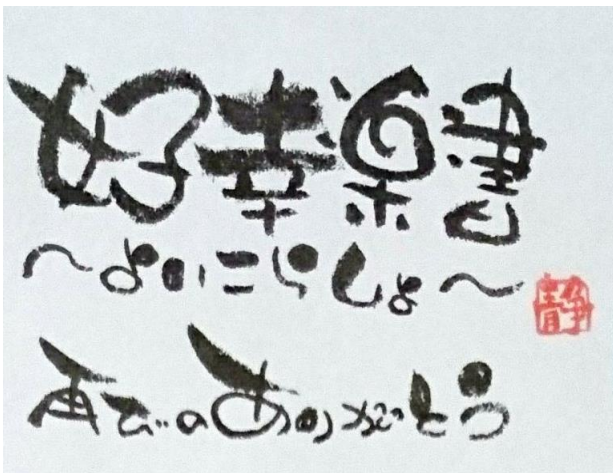 好幸楽書
～よいこらしょ～
静
再びのありがとう